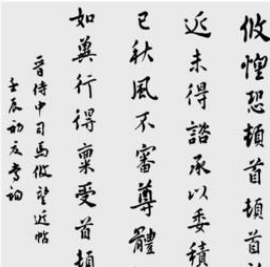 攸惶恐頓首頓首
近未得諮承以委積
已秋風不審尊體
如冀行得稟受首頓
晉侍中司馬攸望近帖
壬辰初夏